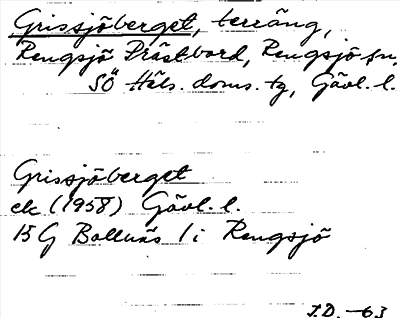 Grissjöberget, terräng,
Rengsjö Prästbord, Rengsjö sn,
SÖ Häls. doms. tg, Gävl. l.
Grissjöberget
ek (1958) Gävl. l.
15 G Bollnäs 1 i Rengsjö
J.D. -63